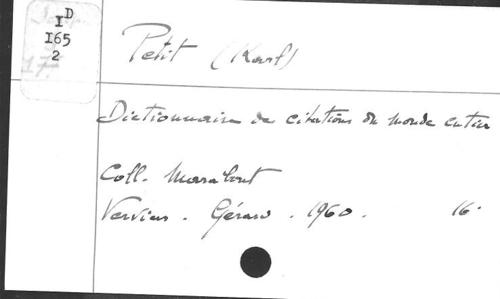 ID
I65
2
17
Petit (Karl)
Dictionnaire de citations du monde entier
Coll. Marabout
Verviers. Gérard. 1960. 16°